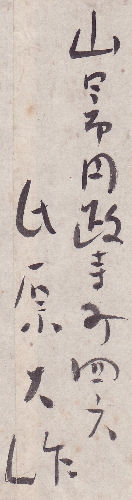 山口市円政寺町四六
氏原大作